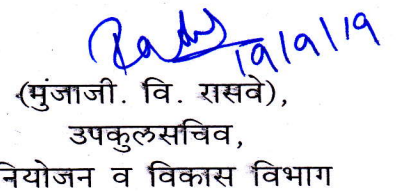 19/9/19
(मुंजाजी. वि. रासवे),
उपकुलसचिव,
नियोजन व विकास विभाग